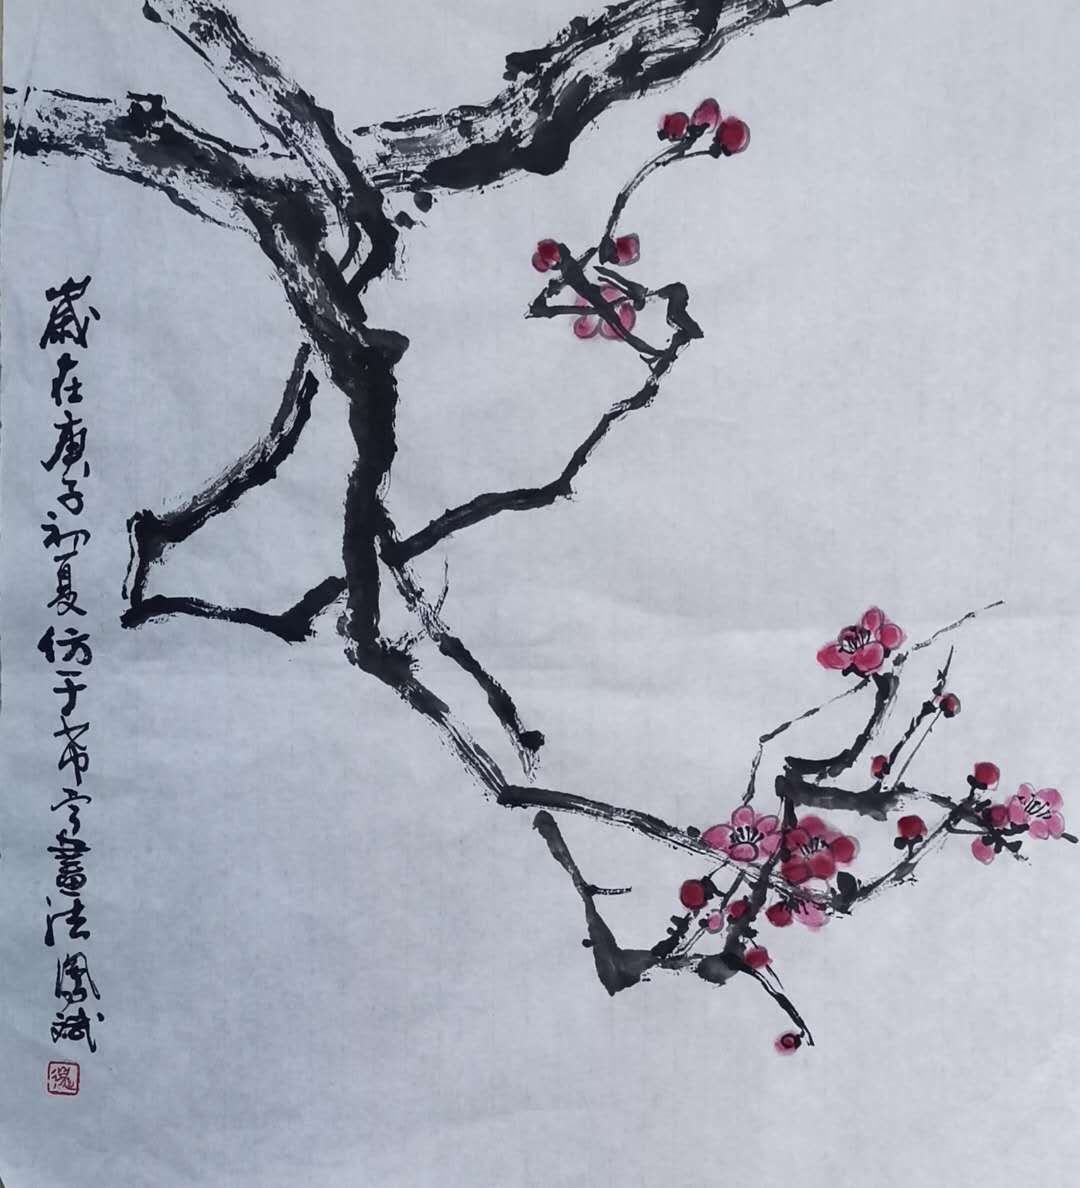 歲在庚子初夏仿于希宁畫法鳳斌